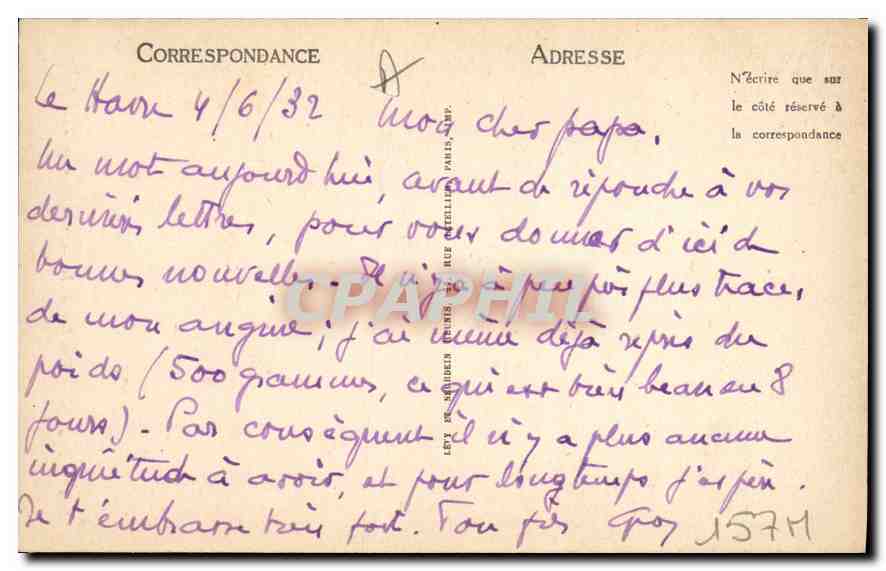 CORRESPONDANCE
ADRESSE
N'écrire que sur
le côté réservé à
la correspondance
Le Havre 4/6/32 Mon cher papa,
Un mot aujourd'hui, avant de répondre à vos
dernières lettres, pour vous donner d'ici de
bonnes nouvelles. Il n'y a à peu près plus traces
de mon angine; j'ai même déjà repris du
poids (500 grammes, ce qui est bien beau en 8
jours). Par conséquent il n'y a plus aucune
inquiétude à avoir, et pour longtemps j'espère.
Je t'embrasse très fort. Ton fils Guy
157M
LÉVY ET NEURDEIN RÉUNIS, RUE LETELLIER, PARIS, IMP.
CPAPHIL